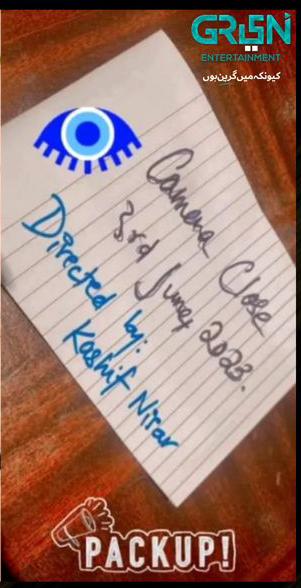 GREEN
ENTERTAINMENT
کیونکہ میں گرین ہوں
Camera Close
3rd June, 2023.
Directed by:
Kashif Nisar
PACKUP!